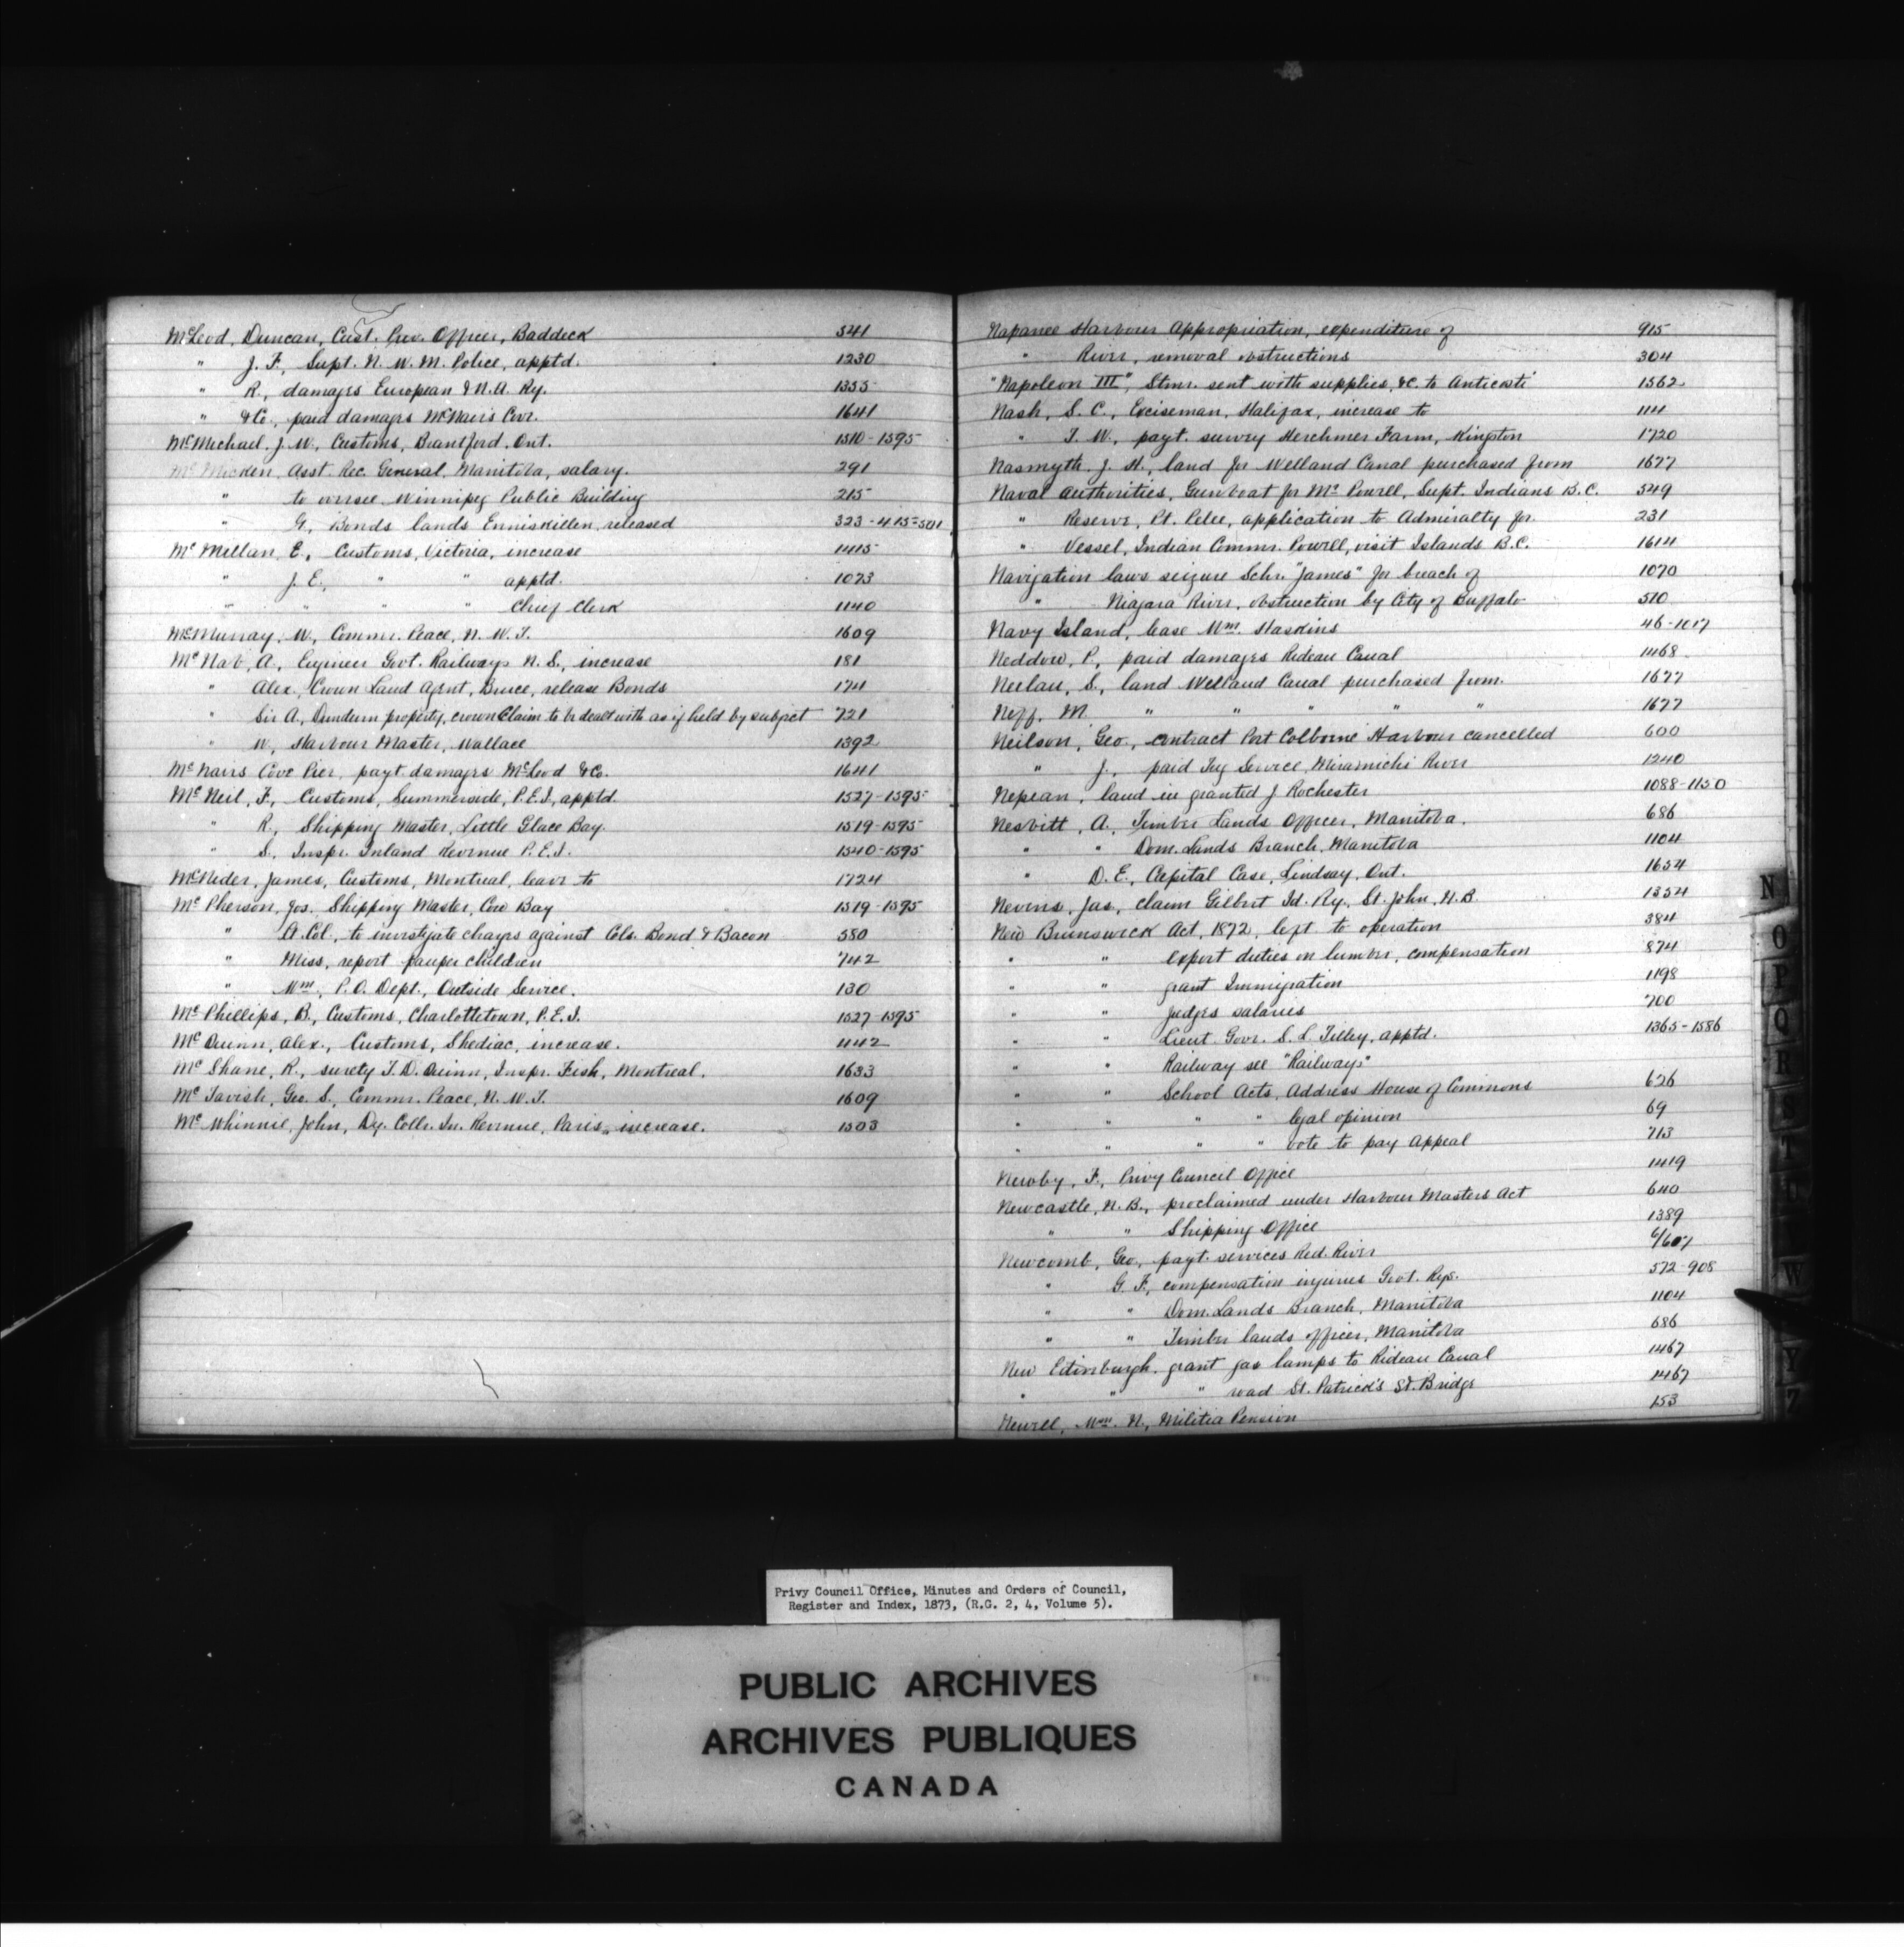 McLeod, Duncan, Cust. Prev. Officer, Baddeck 541
" J. F., Supt. N. W. M. Police, apptd. 1230
" R., damages European & N.A. Ry. 1355
" & Co., paid damages McNairs Cove. 1641
McMichael, J. W., Customs, Brantford, Ont. 1510-1595
McMicken, Asst. Rec. General, Manitoba, salary. 291
" to oversee Winnipeg Public Building 215
" G., Bonds lands Enniskillen, released 323-415-501
McMillan, E., Customs, Victoria, increase 1415
" J. E., " " apptd. 1073
" " " " Chief Clerk 1140
McMurray, W., Commr. Peace, N. W. T. 1609
McNab, A., Engineer Govt. Railways N. S., increase 181
" Alex., Crown Land Agent, Bruce, release Bonds 174
" Sir A., Dundurn property, crown Claim to be dealt with as if held by subject 721
" W., Harbour Master, Wallace 1392
McNairs Cove Pier, payt. damages McLeod & Co. 1641
McNeil, F., Customs, Summerside, P.E.I., apptd. 1527-1595
" R., Shipping Master, Little Glace Bay. 1519-1595
" S., Inspr. Inland Revenue P.E.I. 1540-1595
McNider, James, Customs, Montreal, leave to 1724
McPherson, Jos., Shipping Master, Cow Bay 1519-1595
" Lt. Col., to investigate charges against Cols. Bond & Bacon 580
" Miss, report pauper children 742
" Wm., P.O. Dept., Outside Service. 130
McPhillips, B., Customs, Charlottetown, P.E.I. 1527-1595
McQuinn, Alex., Customs, Shediac, increase. 1142
McShane, R., surety T. D. Quinn, Inspr. Fish, Montreal. 1633
McTavish, Geo. S., Commr. Peace, N. W. T. 1609
McWhinnie, John, Dy. Collr. In. Revenue, Paris, increase. 1503
Napanee Harbour Appropriation, expenditure of 915
" River, removal obstructions 304
"Napoleon III", Stmr. sent with supplies, &c. to Anticosti 1562
Nash, S. C., Exciseman, Halifax, increase to 1111
" T. W., payt. survey Herchmer Farm, Kingston 1720
Nasmyth, J. H., land for Welland Canal purchased from 1677
Naval authorities, Gunboat for Mr. Powell, Supt. Indians B.C. 549
" Reserve, Pt. Pelee, application to Admiralty for. 231
" Vessel, Indian Commr. Powell, visit Islands B.C. 1614
Navigation laws seizure Schr. "James" for breach of 1070
" Niagara River, obstruction by City of Buffalo 510
Navy Island, lease Wm. Haskins 46-1017
Neddow, P., paid damages Rideau Canal 1468
Neelan, S., land Welland Canal purchased from. 1677
Neff, M. " " " " " 1677
Neilson, Geo., contract Port Colborne Harbour cancelled 600
" J., paid Tug Service, Miramichi River 1240
Nepean, land in granted J. Rochester 1088-1150
Nesbitt, A., Timber Lands Officer, Manitoba. 686
" " Dom. Lands Branch, Manitoba 1104
" D. E., Capital Case, Lindsay, Ont. 1654
Nevins, Jas., claim Gilbert Id. Ry., St. John, N.B. 1354
New Brunswick Act, 1872, left to operation 384
" " export duties on lumber, compensation 874
" " grant Immigration 1198
" " Judges salaries 700
" " Lieut. Govr. S. L. Tilley, apptd. 1365-1586
" " Railway see "Railways"
" " School Acts, Address House of Commons 626
" " " " legal opinion 69
" " " " vote to pay Appeal 713
Newby, F., Privy Council Office 1419
Newcastle, N. B., proclaimed under Harbour Masters Act 640
" " Shipping Office 1389
Newcomb, Geo., payt. services Red River 6/607
" G. F., compensation injuries Govt. Rys. 572-908
" " Dom. Lands Branch, Manitoba 1104
" " Timber lands officer, Manitoba 686
New Edinburgh, grant gas lamps to Rideau Canal 1467
" " " road St. Patrick's St. Bridge 1467
Newell, Wm. N., Militia Pension 153
N
O
P
Q
R
S
T
W
Y
Z
Privy Council Office, Minutes and Orders of Council,
Register and Index, 1873, (R.G. 2, 4, Volume 5).
PUBLIC ARCHIVES
ARCHIVES PUBLIQUES
CANADA